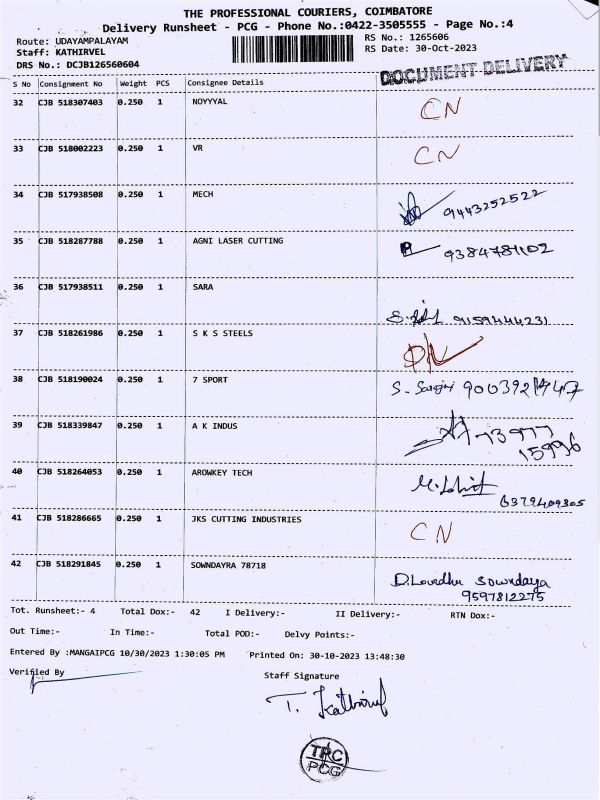 THE PROFESSIONAL COURIERS, COIMBATORE
Delivery Runsheet - PCG - Phone No.:0422-3505555 - Page No.:4
Route: UDAYAMPALAYAM
Staff: KATHIRVEL
DRS No.: DCJB126560604
RS No.: 1265606
RS Date: 30-Oct-2023
DOCUMENT DELIVERY
S No Consignment No Weight PCS Consignee Details
32 CJB 518307403 0.250 1 NOYYYAL CN
33 CJB 518002223 0.250 1 VR CN
34 CJB 517938508 0.250 1 MECH 9443252522
35 CJB 518287788 0.250 1 AGNI LASER CUTTING 9384781102
36 CJB 517938511 0.250 1 SARA 9159444231
37 CJB 518261986 0.250 1 S K S STEELS
38 CJB 518190024 0.250 1 7 SPORT
39 CJB 518339847 0.250 1 A K INDUS 73977
15996
40 CJB 518264053 0.250 1 AROWKEY TECH
6379409305
41 CJB 518286665 0.250 1 JKS CUTTING INDUSTRIES CN
42 CJB 518291845 0.250 1 SOWNDAYRA 78718 D. Lourdhu Sowndaya
9597812275
Tot. Runsheet:- 4 Total Dox:- 42 I Delivery:- II Delivery:- RTN Dox:-
Out Time:- In Time:- Total POD:- Delvy Points:-
Entered By :MANGAIPCG 10/30/2023 1:30:05 PM Printed On: 30-10-2023 13:48:30
Verified By
Staff Signature
T. Kathirvel
TPC
PCG